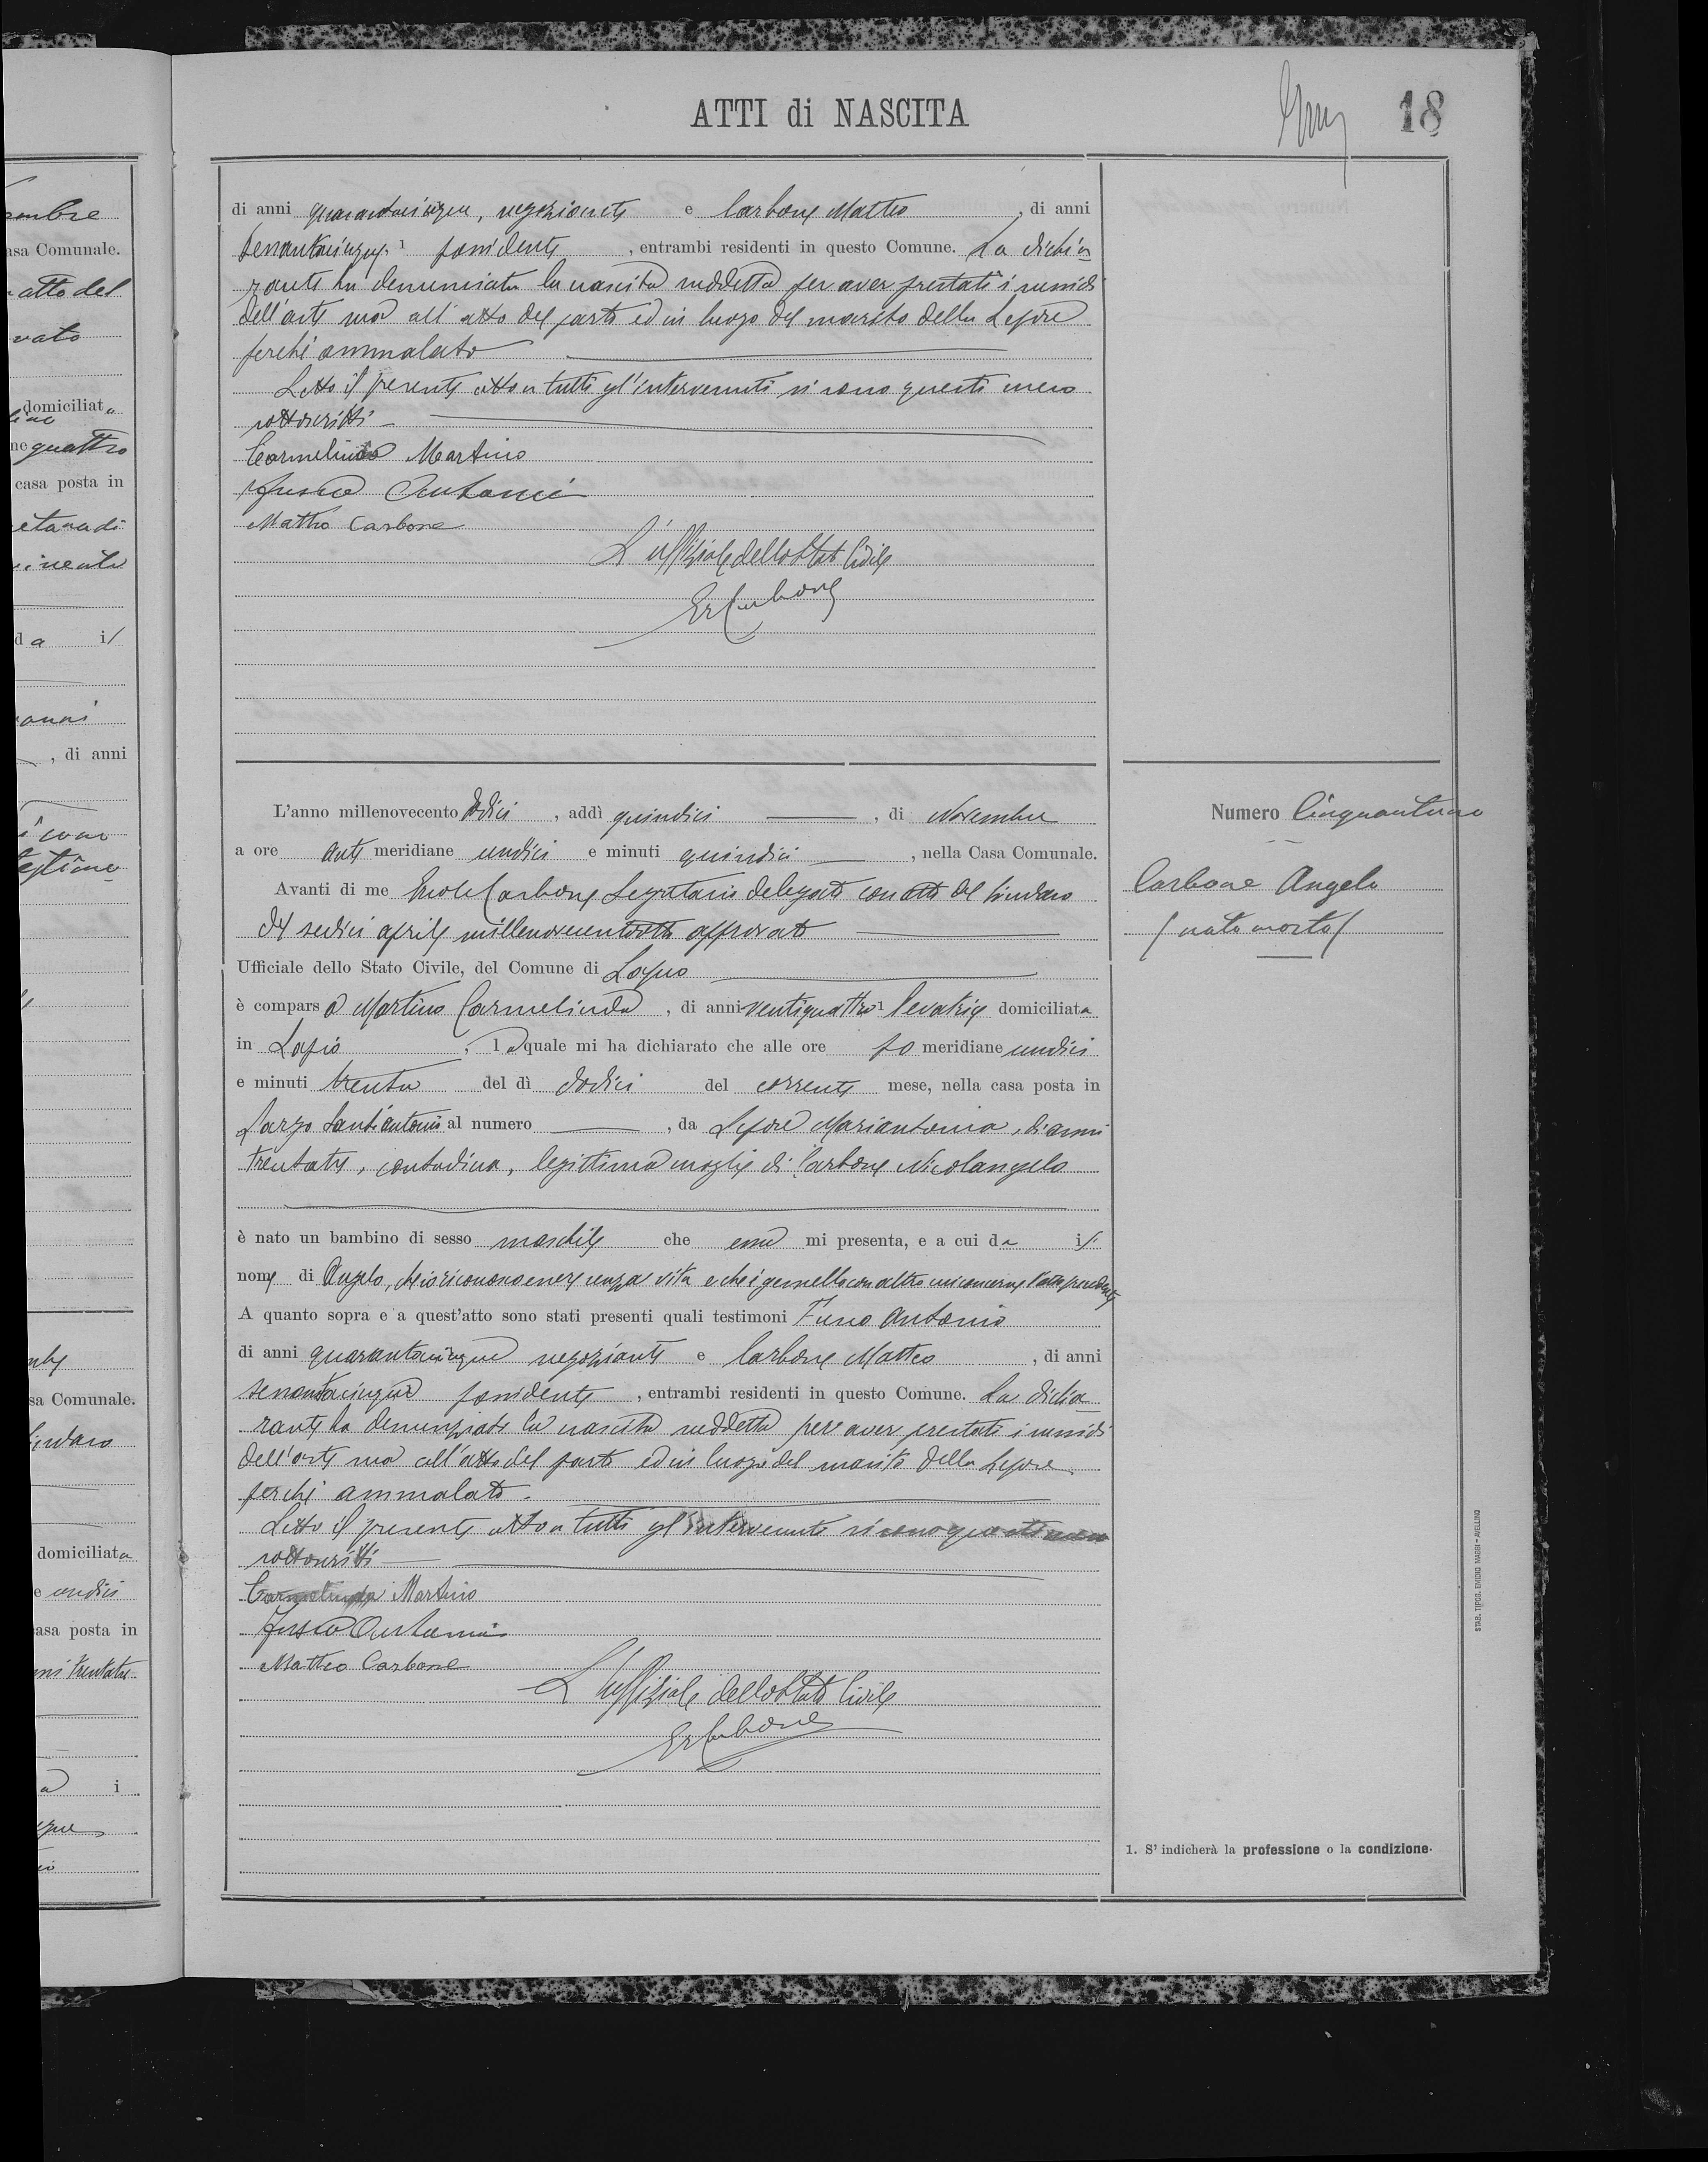 ATTI di NASCITA
18
di anni quarantacinque, negoziante e Carbone Matteo, di anni
sessantacinque 1 possidente, entrambi residenti in questo Comune. La dichia
rante ha denunciata la nascita suddetta per aver prestati i sussidi
dell'arte sua all'atto del parto ed in luogo del marito della Lepore
perchè ammalato
Letto il presente atto a tutti gl'intervenuti si sono questi meco
sottoscritti
Carmelinda Martino
Fusco Antonio
Matteo Carbone
L'uffiziale dello Stato Civile
Er Carbone
L'anno millenovecento dodici, addì quindici, di Novembre
a ore anti meridiane undici e minuti quindici, nella Casa Comunale.
Avanti di me Ercole Carbone Segretario delegato con atto del Sindaco
del sedici aprile millenovecentootto approvato
Ufficiale dello Stato Civile, del Comune di Lapio
è comparsa Martino Carmelinda, di anni ventiquattro 1 levatrice domiciliata
in Lapio, la quale mi ha dichiarato che alle ore po meridiane undici
e minuti trenta del dì dodici del corrente mese, nella casa posta in
Largo Sant'Antonio al numero, da Lepore Mariantonia, di anni
trentatre, contadina, legittima moglie di Carbone Nicolangelo
è nato un bambino di sesso maschile che essa mi presenta, e a cui da il
nome di Angelo, che io riconosco essere senza vita e che è gemello con altro cui concerne l'atto precedente
A quanto sopra e a quest'atto sono stati presenti quali testimoni Fusco Antonio
di anni quarantacinque negoziante e Carbone Matteo, di anni
sessantacinque possidente, entrambi residenti in questo Comune. La dichia
rante ha denunziato la nascita suddetta per aver prestati i sussidi
dell'arte sua all'atto del parto ed in luogo del marito della Lepore
perchè ammalato.
Letto il presente atto a tutti gl'intervenuti si sono questi meco
sottoscritti
Carmelinda Martino
Fusco Antonio
Matteo Carbone
L'uffiziale dello Stato Civile
Er Carbone
Numero Cinquantuno
Carbone Angelo
(nato morto)
1. S'indicherà la professione o la condizione.
STAB. TIPOG. EMIDIO MAGGI - AVELLINO
embre
asa Comunale.
atto del
vato
domiciliata
ne quattro
casa posta in
da il
, di anni
sa Comunale.
Sindaco
domiciliata
e undici
casa posta in
nni trentatre
a i